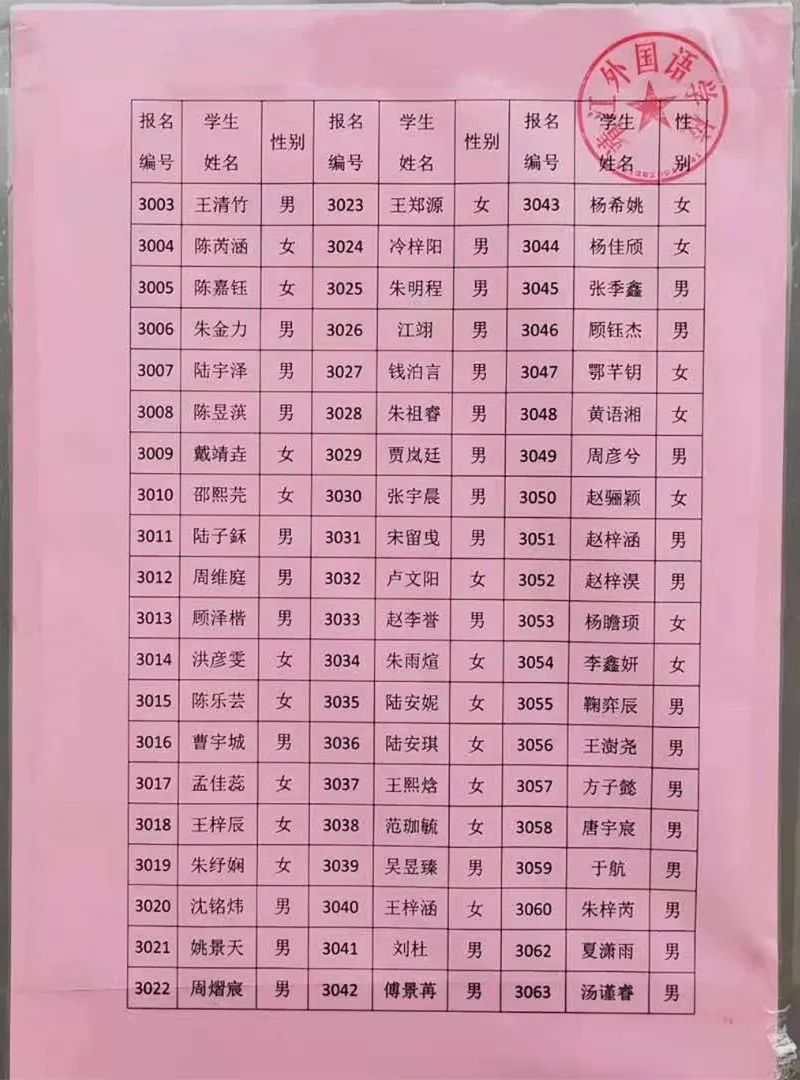 江外国语学校
报名编号 学生姓名 性别 报名编号 学生姓名 性别 报名编号 学生姓名 性别
3003 王清竹 男 3023 王郑源 女 3043 杨希姚 女
3004 陈芮涵 女 3024 冷梓阳 男 3044 杨佳颀 女
3005 陈嘉钰 女 3025 朱明程 男 3045 张季鑫 男
3006 朱金力 男 3026 江翊 男 3046 顾钰杰 男
3007 陆宇泽 男 3027 钱泊言 男 3047 鄂芊钥 女
3008 陈昱蓂 男 3028 朱祖睿 男 3048 黄语湘 女
3009 戴靖垚 女 3029 贾岚廷 男 3049 周彦兮 男
3010 邵熙芫 女 3030 张宇晨 男 3050 赵骊颖 女
3011 陆子稣 男 3031 宋留曵 男 3051 赵梓涵 男
3012 周维庭 男 3032 卢文阳 女 3052 赵梓淏 男
3013 顾泽楷 男 3033 赵李誉 男 3053 杨瞻顼 女
3014 洪彦雯 女 3034 朱雨煊 女 3054 李鑫妍 女
3015 陈乐芸 女 3035 陆安妮 女 3055 鞠弈辰 男
3016 曹宇城 男 3036 陆安琪 女 3056 王澍尧 男
3017 孟佳蕊 女 3037 王熙焓 女 3057 方子懿 男
3018 王梓辰 女 3038 范珈毓 女 3058 唐宇宸 男
3019 朱纾娴 女 3039 吴昱臻 男 3059 于航 男
3020 沈铭炜 男 3040 王梓涵 女 3060 朱梓芮 男
3021 姚景天 男 3041 刘杜 男 3062 夏潇雨 男
3022 周熠宸 男 3042 傅景苒 男 3063 汤谨睿 男